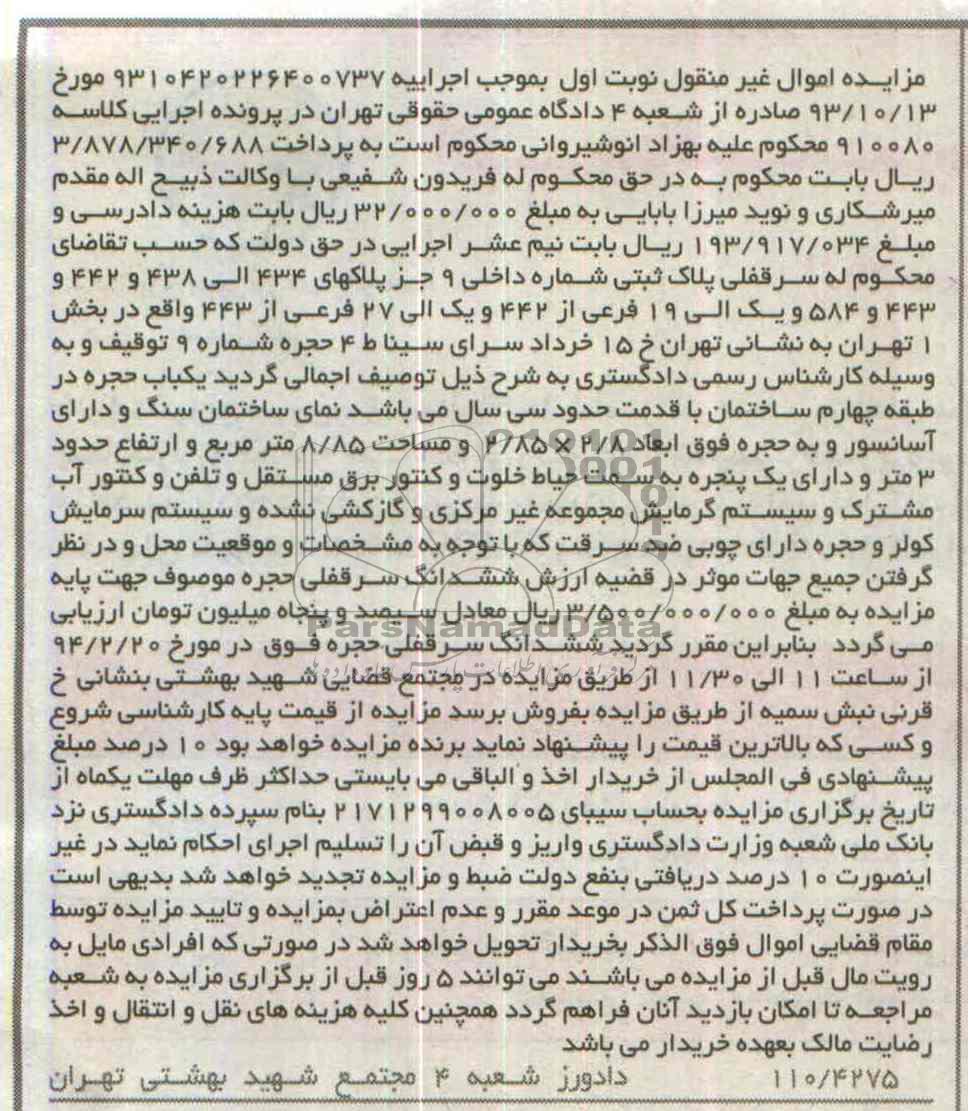 مزایده اموال غیر منقول نوبت اول بموجب اجراییه ۹۳۱۰۴۲۰۲۲۶۴۰۰۷۳۷ مورخ
۹۳/۱۰/۱۳ صادره از شعبه ۴ دادگاه عمومی حقوقی تهران در پرونده اجرایی کلاسه
۹۱۰۰۸۰ محکوم علیه بهزاد انوشیروانی محکوم است به پرداخت ۳/۸۷۸/۳۴۰/۶۸۸
ریال بابت محکوم به در حق محکوم له فریدون شفیعی با وکالت ذبیح اله مقدم
میرشکاری و نوید میرزا بابایی به مبلغ ۳۲/۰۰۰/۰۰۰ ریال بابت هزینه دادرسی و
مبلغ ۱۹۳/۹۱۷/۰۳۴ ریال بابت نیم عشر اجرایی در حق دولت که حسب تقاضای
محکوم له سرقفلی پلاک ثبتی شماره داخلی ۹ جز پلاکهای ۴۳۴ الی ۴۳۸ و ۴۴۲ و
۴۴۳ و ۵۸۴ و یک الی ۱۹ فرعی از ۴۴۲ و یک الی ۲۷ فرعی از ۴۴۳ واقع در بخش
۱ تهران به نشانی تهران خ ۱۵ خرداد سرای سینا ط ۴ حجره شماره ۹ توقیف و به
وسیله کارشناس رسمی دادگستری به شرح ذیل توصیف اجمالی گردید یکباب حجره در
طبقه چهارم ساختمان با قدمت حدود سی سال می باشد نمای ساختمان سنگ و دارای
آسانسور و به حجره فوق ابعاد ۲/۸ × ۲/۸۵ و مساحت ۸/۸۵ متر مربع و ارتفاع حدود
۳ متر و دارای یک پنجره به سمت حیاط خلوت و کنتور برق مستقل و تلفن و کنتور آب
مشترک و سیستم گرمایش مجموعه غیر مرکزی و گازکشی نشده و سیستم سرمایش
کولر و حجره دارای چوبی ضد سرقت که با توجه به مشخصات و موقعیت محل و در نظر
گرفتن جمیع جهات موثر در قضیه ارزش ششدانگ سرقفلی حجره موصوف جهت پایه
مزایده به مبلغ ۳/۵۰۰/۰۰۰/۰۰۰ ریال معادل سیصد و پنجاه میلیون تومان ارزیابی
می گردد بنابراین مقرر گردید ششدانگ سرقفلی حجره فوق در مورخ ۹۴/۲/۲۰
از ساعت ۱۱ الی ۱۱/۳۰ از طریق مزایده در مجتمع قضایی شهید بهشتی بنشانی خ
قرنی نبش سمیه از طریق مزایده بفروش برسد مزایده از قیمت پایه کارشناسی شروع
و کسی که بالاترین قیمت را پیشنهاد نماید برنده مزایده خواهد بود ۱۰ درصد مبلغ
پیشنهادی فی المجلس از خریدار اخذ و الباقی می بایستی حداکثر ظرف مهلت یکماه از
تاریخ برگزاری مزایده بحساب سیبای ۲۱۷۱۲۹۹۰۰۸۰۰۵ بنام سپرده دادگستری نزد
بانک ملی شعبه وزارت دادگستری واریز و قبض آن را تسلیم اجرای احکام نماید در غیر
اینصورت ۱۰ درصد دریافتی بنفع دولت ضبط و مزایده تجدید خواهد شد بدیهی است
در صورت پرداخت کل ثمن در موعد مقرر و عدم اعتراض بمزایده و تایید مزایده توسط
مقام قضایی اموال فوق الذکر بخریدار تحویل خواهد شد در صورتی که افرادی مایل به
رویت مال قبل از مزایده می باشند می توانند ۵ روز قبل از برگزاری مزایده به شعبه
مراجعه تا امکان بازدید آنان فراهم گردد همچنین کلیه هزینه های نقل و انتقال و اخذ
رضایت مالک بعهده خریدار می باشد
۱۱۰/۴۲۷۵ دادورز شعبه ۴ مجتمع شهید بهشتی تهران
ParsNamadData